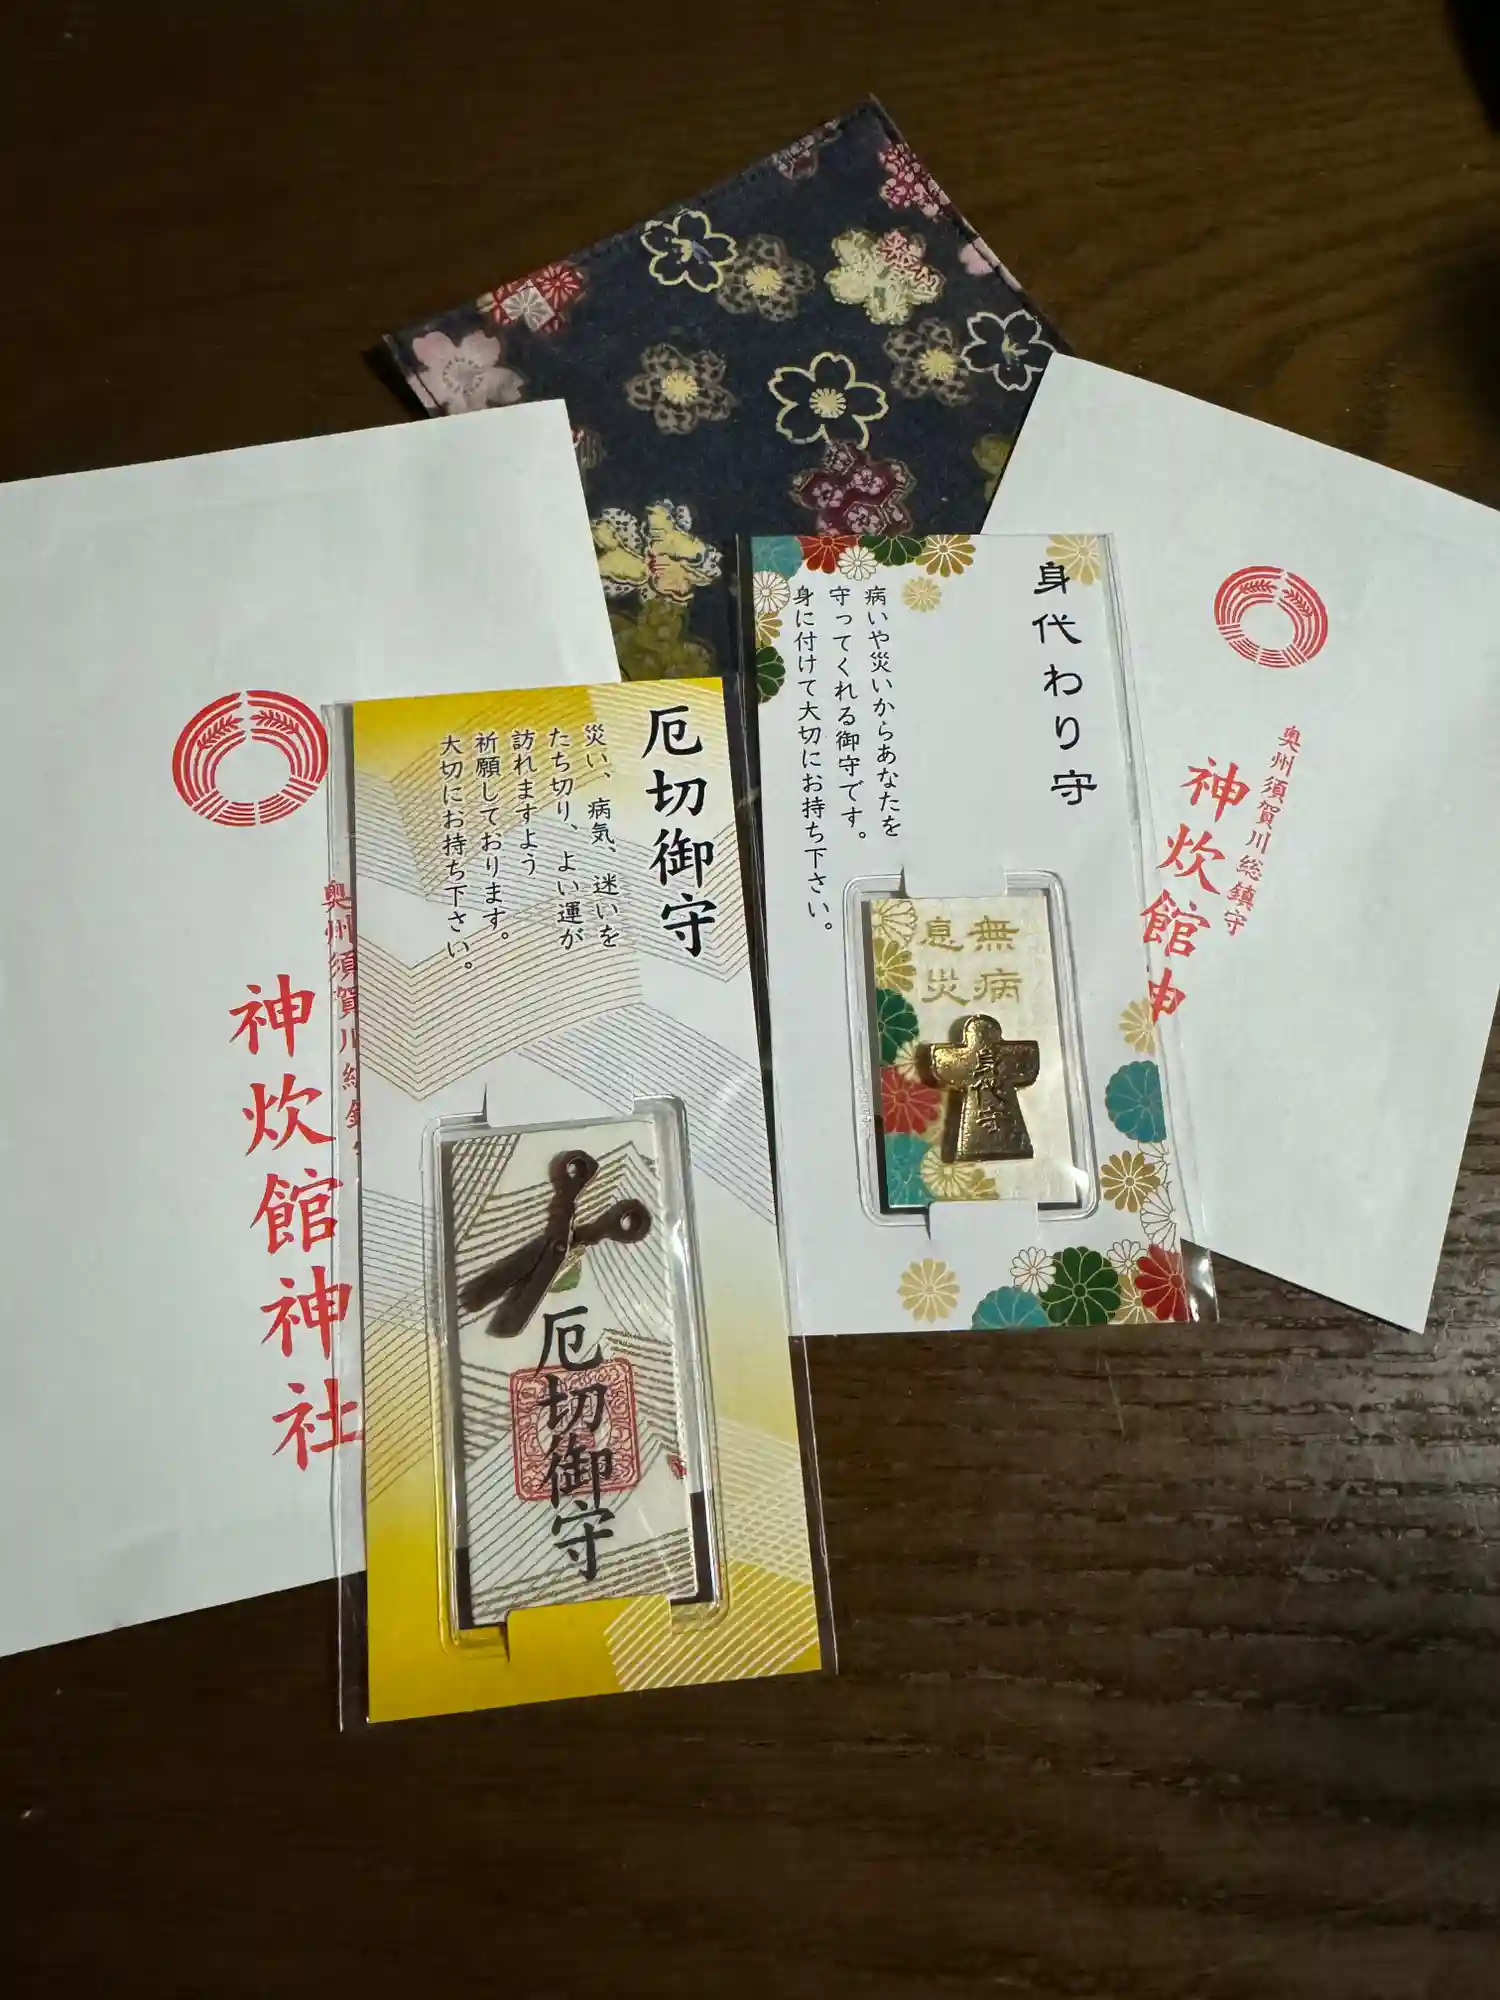 厄切御守
災い、病気、迷いを
たち切り、よい運が
訪れますよう
祈願しております。
大切にお持ち下さい。
厄切御守
身代わり守
病いや災いからあなたを
守ってくれる御守です。
身に付けて大切にお持ち下さい。
無病
息災
身代守
奥州須賀川総鎮守
神炊館神社
奥州須賀川総鎮守
神炊館神